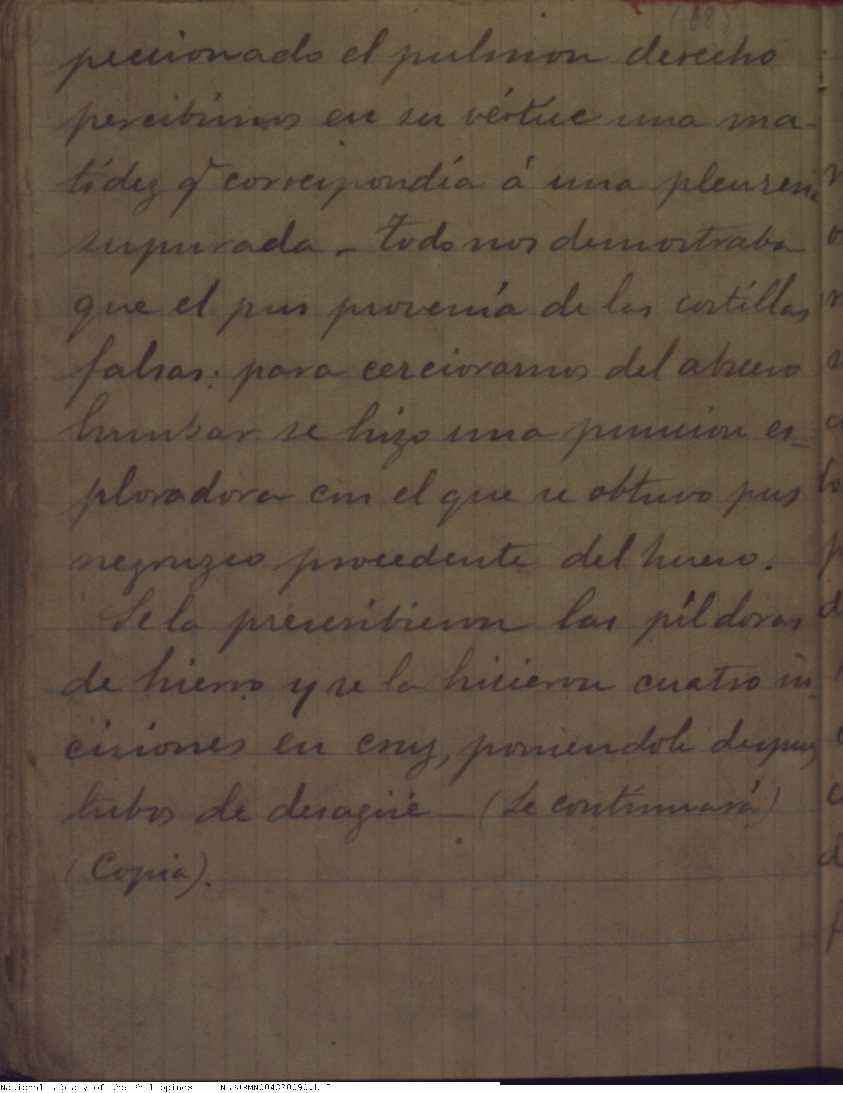 (68)
peccionado el pulmon derecho
percibimos en su vértice una ma-
tidez q correspondía á una pleuresia
supurada _ todo nos demostraba
que el pus provenía de las costillas
falsas: para cerciorarnos del absceso
lumbar se hizo una puncion es-
ploradora con el que se obtuvo pus
negruzco procedente del hueso.
Se la prescribieron las píldoras
de hierro y se la hicieron cuatro in-
cisiones en cruz, poniendole despues
tubos de desagüe _ (Se continuará)
(Copia).
National Library of the Philippines